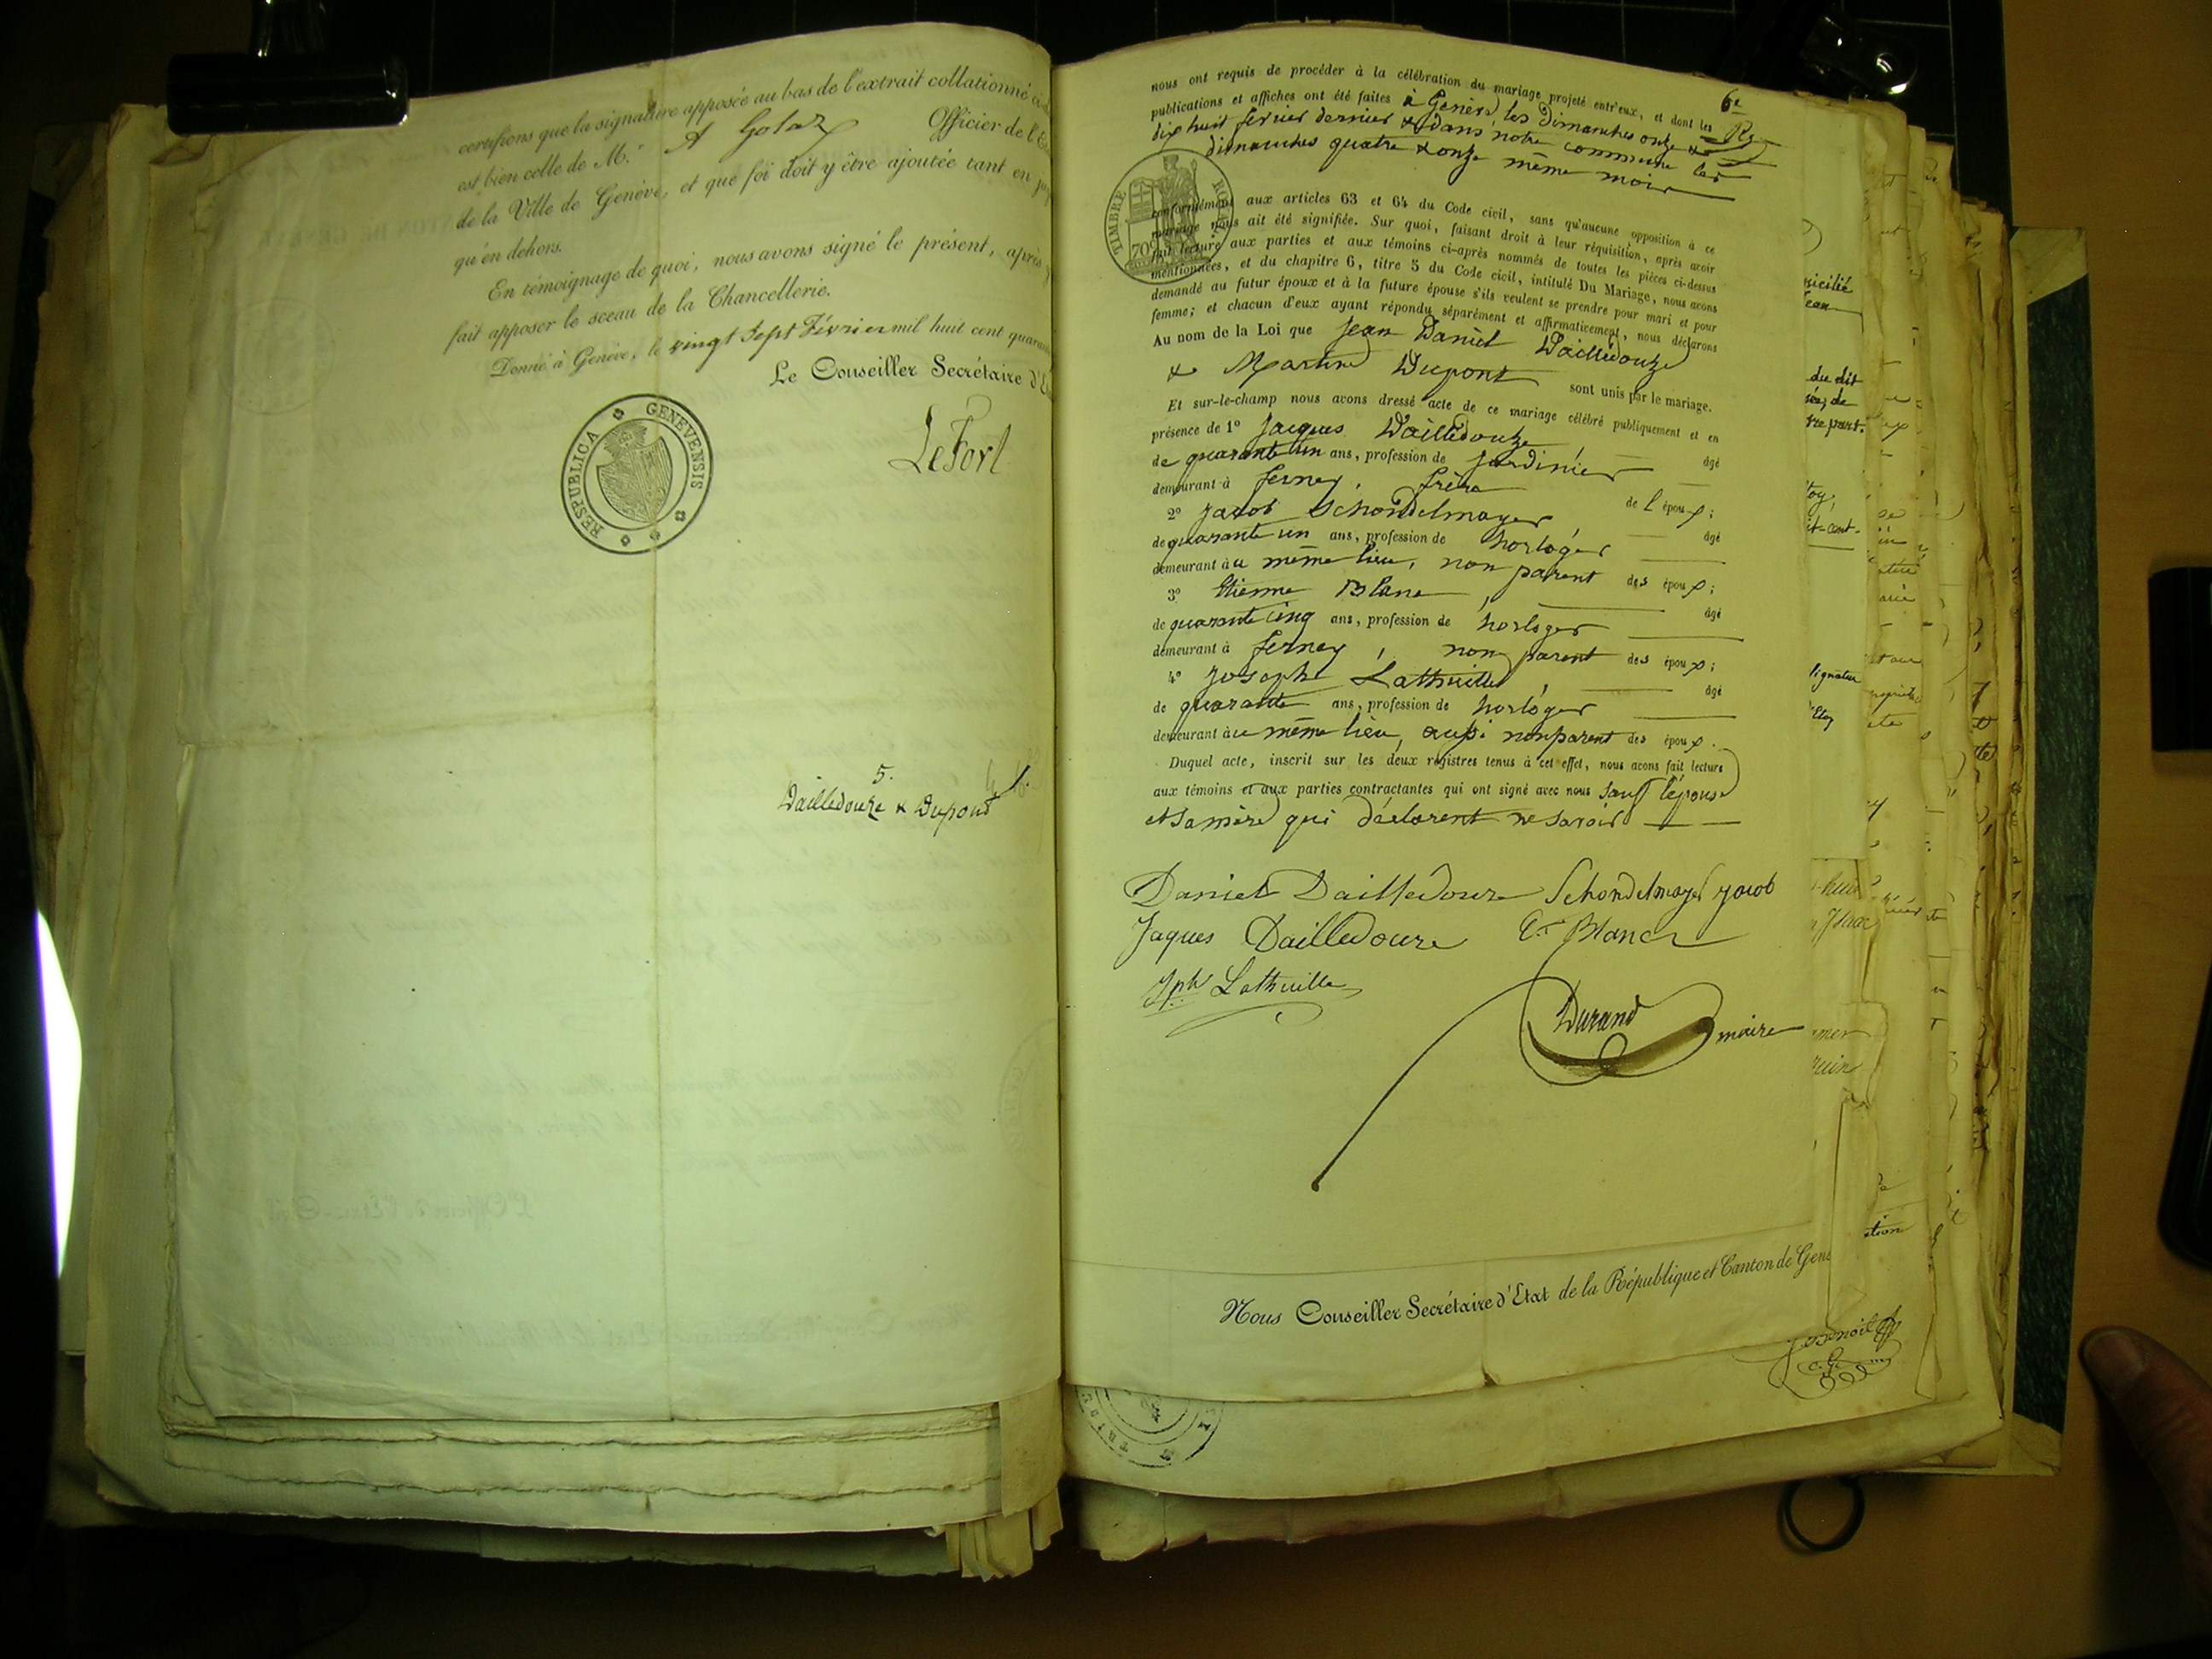 certifions que la signature apposée au bas de l'extrait collationné
est bien celle de M.r A Golaz Officier de l'E
de la Ville de Genève, et que foi doit y être ajoutée tant en
qu'en dehors.
En témoignage de quoi, nous avons signé le présent, après
fait apposer le sceau de la Chancellerie.
Donné à Genève, le vingt sept Février mil huit cent quaran
Le Conseiller Secrétaire d'E
LeFort
RESPUBLICA GENEVENSIS
5.
Dailledouze & Dupont
6e
nous ont requis de procéder à la célébration du mariage projeté entr'eux, et dont les
publications et affiches ont été faites à Genève les dimanches onze &
dix huit février dernier & dans notre commune les
dimanches quatre & onze même mois
TIMBRE ROYAL
70
conformément aux articles 63 et 64 du Code civil, sans qu'aucune opposition à ce
mariage nous ait été signifiée. Sur quoi, faisant droit à leur réquisition, après avoir
fait lecture aux parties et aux témoins ci-après nommés de toutes les pièces ci-dessus
mentionnées, et du chapitre 6, titre 5 du Code civil, intitulé Du Mariage, nous avons
demandé au futur époux et à la future épouse s'ils veulent se prendre pour mari et pour
femme; et chacun d'eux ayant répondu séparément et affirmativement, nous déclarons
Au nom de la Loi que Jean Daniel Dailledouze
& Martine Dupont sont unis par le mariage.
Et sur-le-champ nous avons dressé acte de ce mariage célébré publiquement et en
présence de 1° Jacques Dailledouze âgé
de quarante un ans, profession de jardinier
demeurant à ferney, frère de l'époux;
2° Jacob Schondelmayer âgé
de quarante un ans, profession de horloger
demeurant au même lieu, non parent des époux;
3° Etienne Blanc, âgé
de quarante cinq ans, profession de horloger
demeurant à ferney, non parent des époux;
4° Joseph Lathuille, âgé
de quarante ans, profession de horloger
demeurant au même lieu, aussi non parent des époux.
Duquel acte, inscrit sur les deux registres tenus à cet effet, nous avons fait lecture
aux témoins et aux parties contractantes qui ont signé avec nous sauf l'épouse
et sa mère qui déclarent ne savoir
Daniel Dailledouze Schondelmayer jacob
Jaques Dailledouze Et. Blanc
Jph Lathuille
Durand maire
Nous Conseiller Secrétaire d'Etat de la République et Canton de Genè